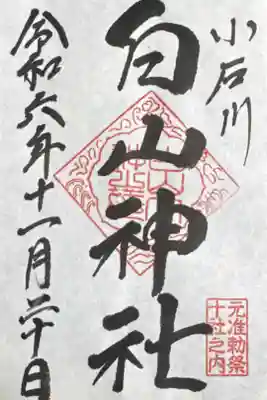 小石川
白山神社
元准勅祭
十社之内
令和六年十一月二十日